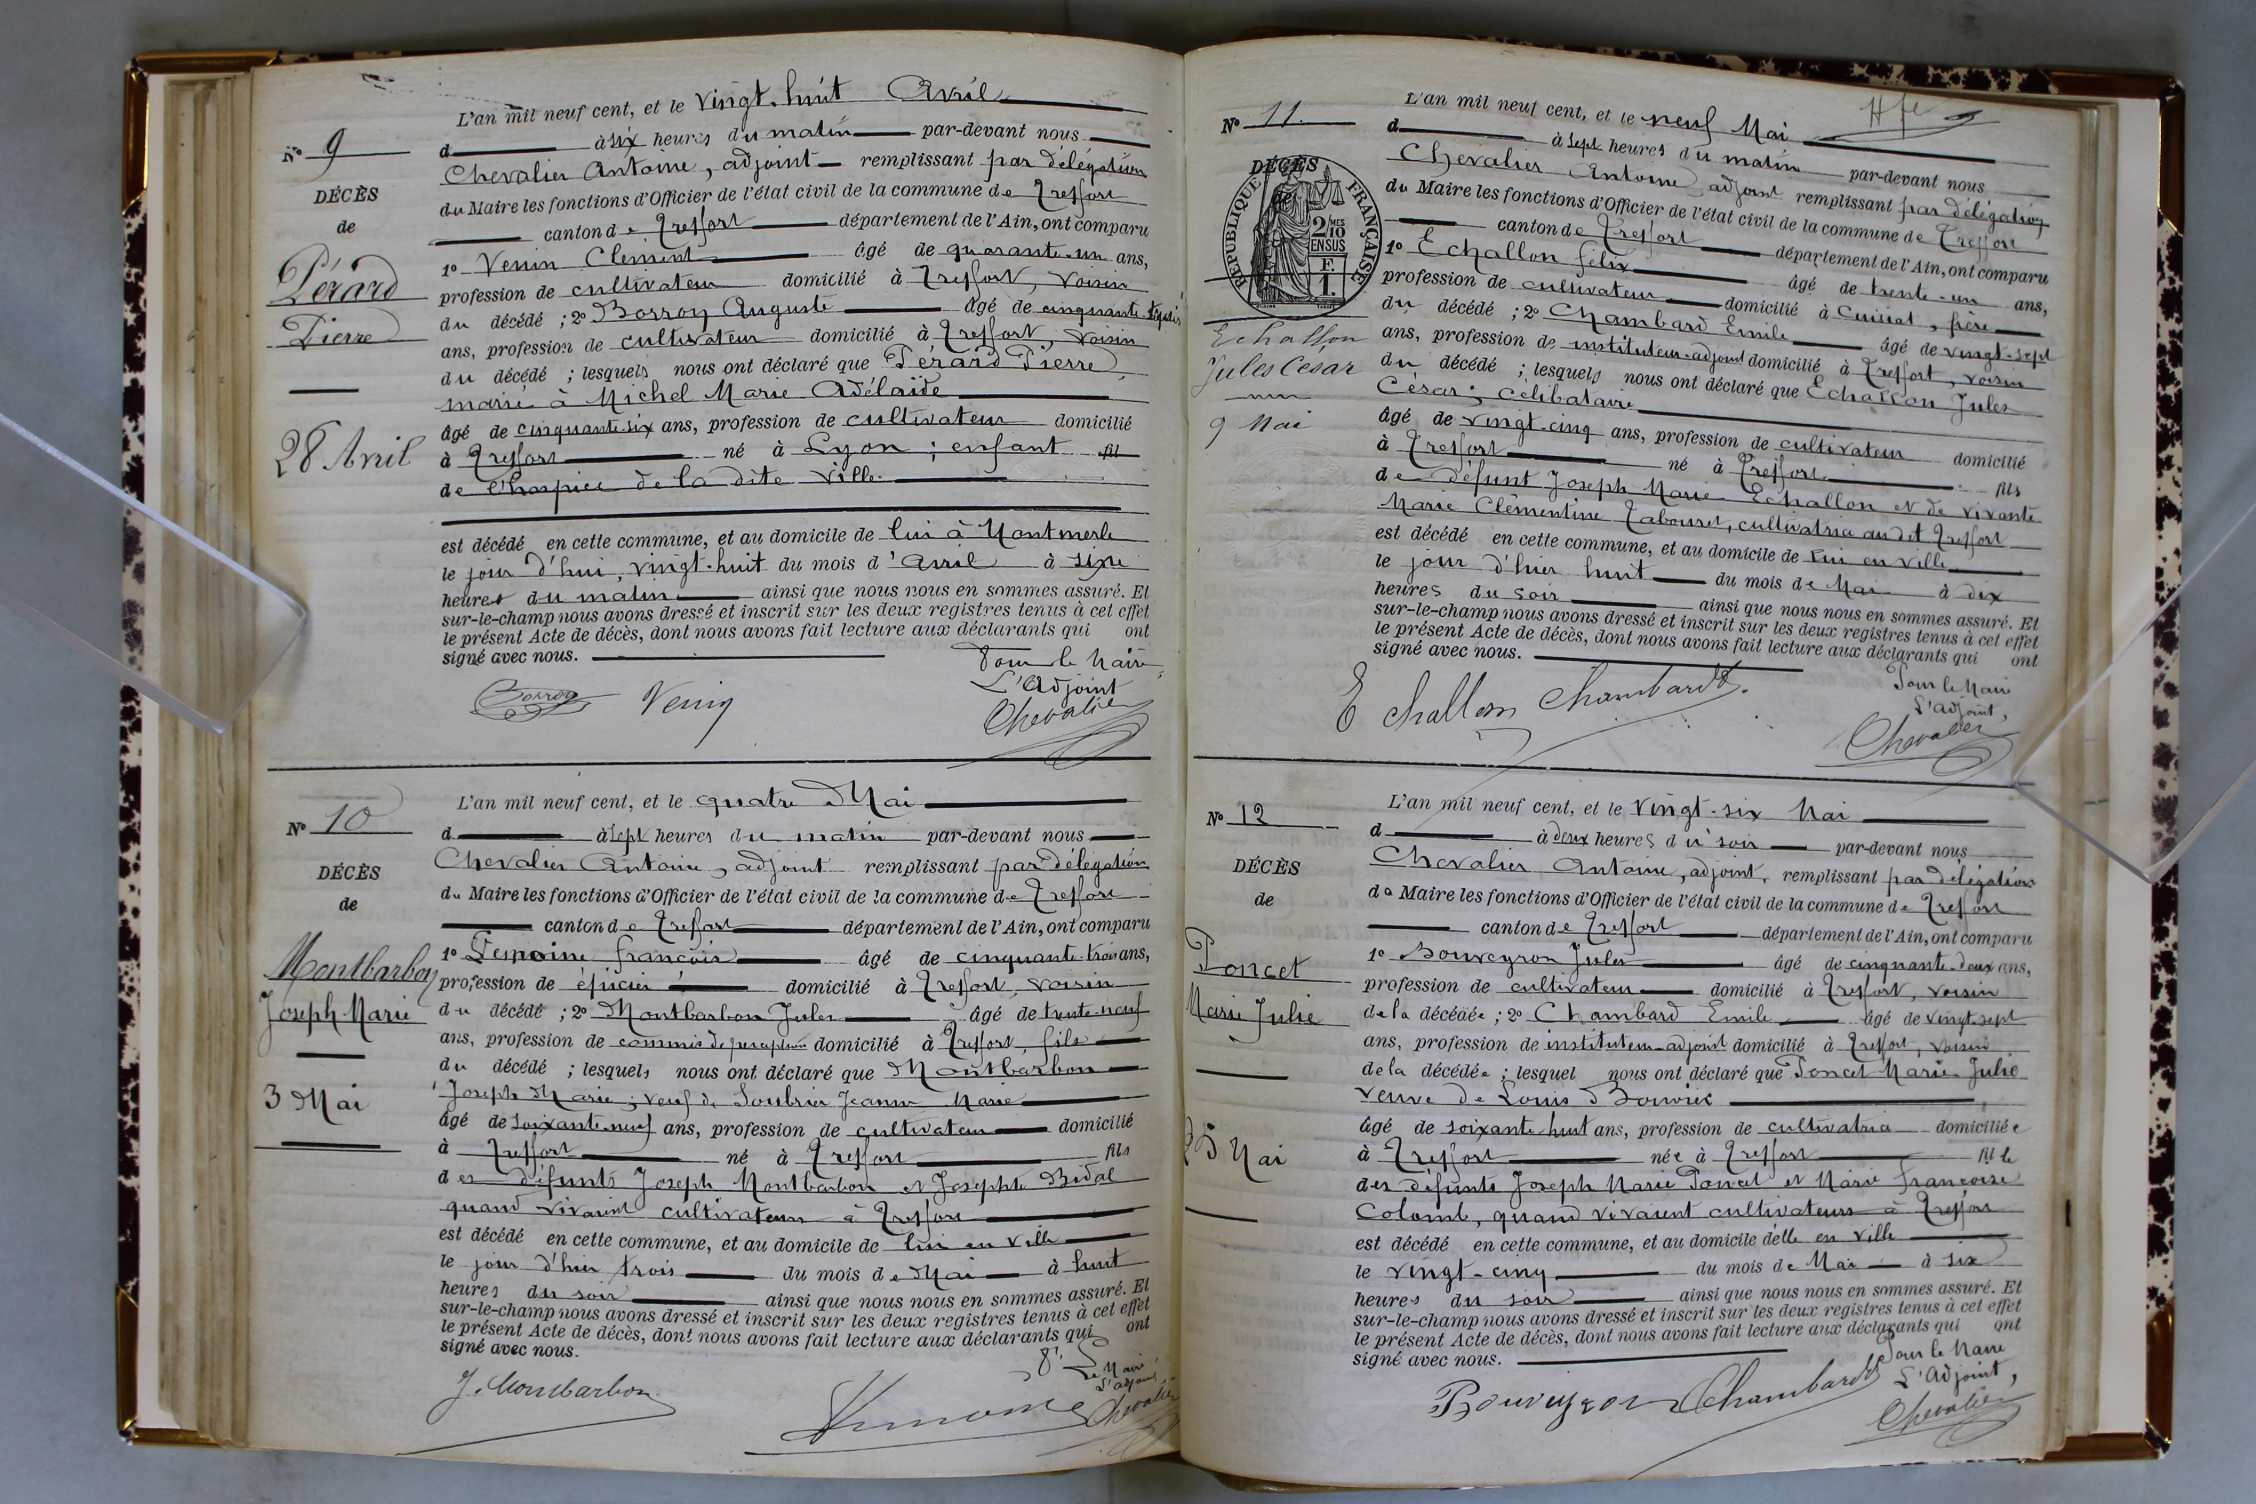 L'an mil neuf cent, et le vingt-huit Avril
N° 9
d à six heures du matin par-devant nous
Chevalier Antoine, adjoint remplissant par délégation
DÉCÈS
du Maire les fonctions d'Officier de l'état civil de la commune de Treffort
de
canton de Treffort département de l'Ain, ont comparu
Pérard
Pierre
1° Venin Clément âgé de quarante-un ans,
profession de cultivateur domicilié à Treffort, voisin
du décédé ; 2° Borron Auguste âgé de cinquante
ans, profession de cultivateur domicilié à Treffort, voisin
du décédé ; lesquels nous ont déclaré que Pérard Pierre
marié à Michel Marie Adélaïde
28 Avril
âgé de cinquante-six ans, profession de cultivateur domicilié
à Treffort né à Lyon ; enfant fil
de l'hospice de la dite ville.
est décédé en cette commune, et au domicile de lui à Montmerle
le jour d'hui, vingt-huit du mois d'Avril à sixe
heures du matin ainsi que nous nous en sommes assuré. Et
sur-le-champ nous avons dressé et inscrit sur les deux registres tenus à cet effet
le présent Acte de décès, dont nous avons fait lecture aux déclarants qui ont
signé avec nous.
Pour le Maire
L'Adjoint
Borron Venin Chevalier
L'an mil neuf cent, et le quatre Mai
N° 10
d à sept heures du matin par-devant nous
Chevalier Antoine, adjoint remplissant par délégation
DÉCÈS
du Maire les fonctions d'Officier de l'état civil de la commune de Treffort
de
canton de Treffort département de l'Ain, ont comparu
Montbarbon
Joseph Marie
1° Lemoine françois âgé de cinquante-trois ans,
profession de épicier domicilié à Treffort, voisin
du décédé ; 2° Montbarbon Jules âgé de trente-neuf
ans, profession de commis de perception domicilié à Treffort, fils
du décédé ; lesquels nous ont déclaré que Montbarbon
3 Mai
Joseph Marie ; veuf de Soubrier Jeanne Marie
âgé de soixante-neuf ans, profession de cultivateur domicilié
à Treffort né à Treffort fils
des défunts Joseph Montbarbon et Josephte Bidal
quand vivaient cultivateurs à Treffort
est décédé en cette commune, et au domicile de lui en ville
le jour d'hier trois du mois de Mai à huit
heures du soir ainsi que nous nous en sommes assuré. Et
sur-le-champ nous avons dressé et inscrit sur les deux registres tenus à cet effet
le présent Acte de décès, dont nous avons fait lecture aux déclarants qui ont
signé avec nous.
Le Maire
L'adjoint
J. Montbarbon Lemoine Chevalier
L'an mil neuf cent, et le neuf Mai
N° 11
d à sept heures du matin par-devant nous
Chevalier Antoine, adjoint remplissant par délégation
DÉCÈS
de
RÉPUBLIQUE FRANÇAISE
2/10 EN SUS
F. 1.
du Maire les fonctions d'Officier de l'état civil de la commune de Treffort
canton de Treffort département de l'Ain, ont comparu
1° Echallon félix âgé de trente-un ans,
profession de cultivateur domicilié à Cuisiat, frère
du décédé ; 2° Chambard Emile âgé de vingt-sept
Echallon
Jules César
9 Mai
ans, profession de instituteur-adjoint domicilié à Treffort, voisin
du décédé ; lesquels nous ont déclaré que Echallon Jules
César ; célibataire
âgé de vingt-cinq ans, profession de cultivateur domicilié
à Treffort né à Treffort fils
de défunt Joseph Marie Echallon et de vivante
Marie Clémentine Tabouret, cultivatrice audit Treffort
est décédé en cette commune, et au domicile de lui en ville
le jour d'hier huit du mois de Mai à dix
heures du soir ainsi que nous nous en sommes assuré. Et
sur-le-champ nous avons dressé et inscrit sur les deux registres tenus à cet effet
le présent Acte de décès, dont nous avons fait lecture aux déclarants qui ont
signé avec nous.
Pour le Maire
L'adjoint,
Echallon Chambard Chevalier
L'an mil neuf cent, et le vingt-six Mai
N° 12
d à deux heures du soir par-devant nous
Chevalier Antoine, adjoint, remplissant par délégation
DÉCÈS
de
du Maire les fonctions d'Officier de l'état civil de la commune de Treffort
canton de Treffort département de l'Ain, ont comparu
Poncet
Marie Julie
1° Bouveyron Jules âgé de cinquante-deux ans,
profession de cultivateur domicilié à Treffort, voisin
de la décédée ; 2° Chambard Emile âgé de vingt-sept
ans, profession de instituteur-adjoint domicilié à Treffort, voisin
de la décédée ; lesquel nous ont déclaré que Poncet Marie Julie
veuve de Louis Bouvier
25 Mai
âgé de soixante-huit ans, profession de cultivatrice domiciliée
à Treffort née à Treffort fille
des défunts Joseph Marie Poncet et Marie françoise
Colomb, quand vivaient cultivateurs à Treffort
est décédé en cette commune, et au domicile d'elle en ville
le vingt-cinq du mois de Mai à six
heures du soir ainsi que nous nous en sommes assuré. Et
sur-le-champ nous avons dressé et inscrit sur les deux registres tenus à cet effet
le présent Acte de décès, dont nous avons fait lecture aux déclarants qui ont
signé avec nous.
Pour le Maire
L'Adjoint,
Bouveyron Chambard Chevalier